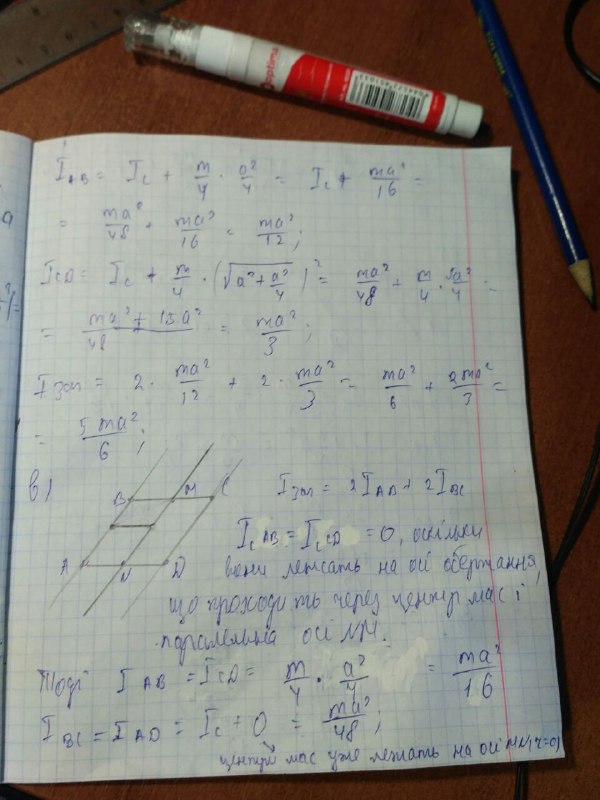 optima
I_AB = I_c + m/4 · a²/4 = I_c + ma²/16 =
= ma²/48 + ma²/16 = ma²/12;
I_CD = I_c + m/4 · (√(a² + a²/4))² = ma²/48 + m/4 · 5a²/4 =
= ma² + 15a²/48 = ma²/3;
I заг = 2 · ma²/12 + 2 · ma²/3 = ma²/6 + 2ma²/3 =
= 5ma²/6;
в)
B M C
A N D
I заг = 2I_AB + 2I_BC
I_c AB = I_c CD = 0, оскільки
вони лежать на осі обертання,
що проходить через центр мас і
паралельна осі NM.
Тоді I_AB = I_CD = m/4 · a²/4 = ma²/16
I_BC = I_AD = I_c + 0 = ma²/48;
центри мас уже лежать на осі MN, r=0)